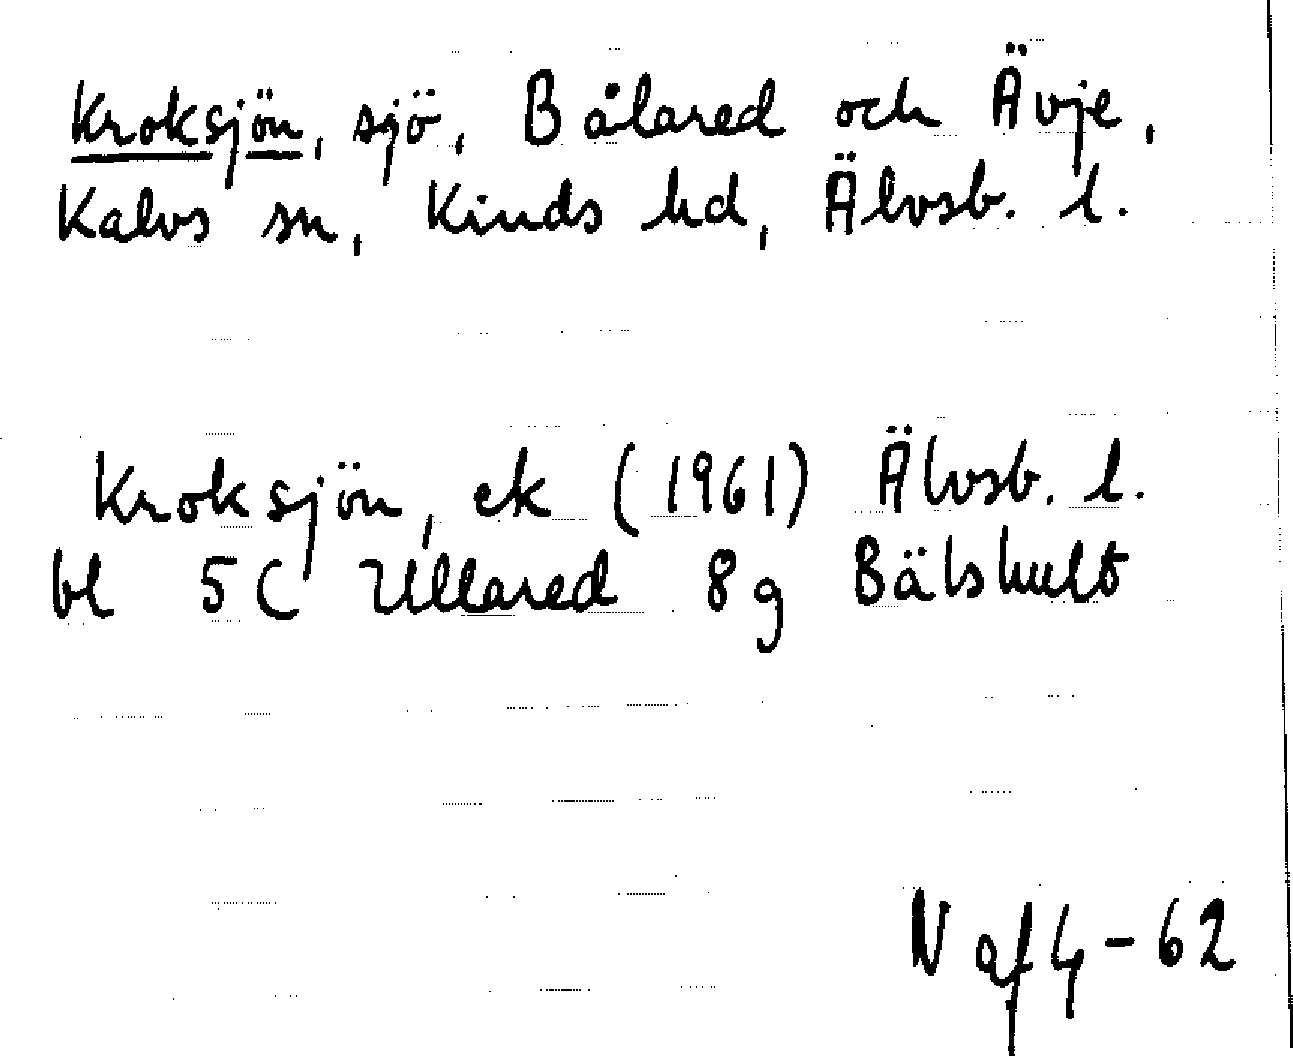 Kroksjön, sjö, Bålared och Ävje,
Kalvs sn, Kinds hd, Älvsb. l.
Kroksjön, ek (1961) Älvsb. l.
bl 5C Ullared 8g Bälshult
N af 4-62